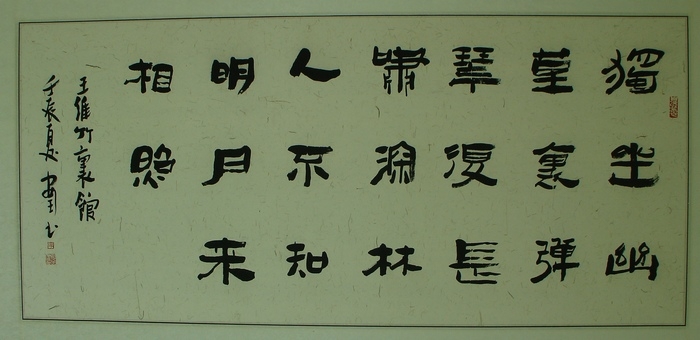 獨坐幽
堇裏彈
琴復長
嘯深林
人不知
明月来
相照
王維竹裏館
壬辰夏